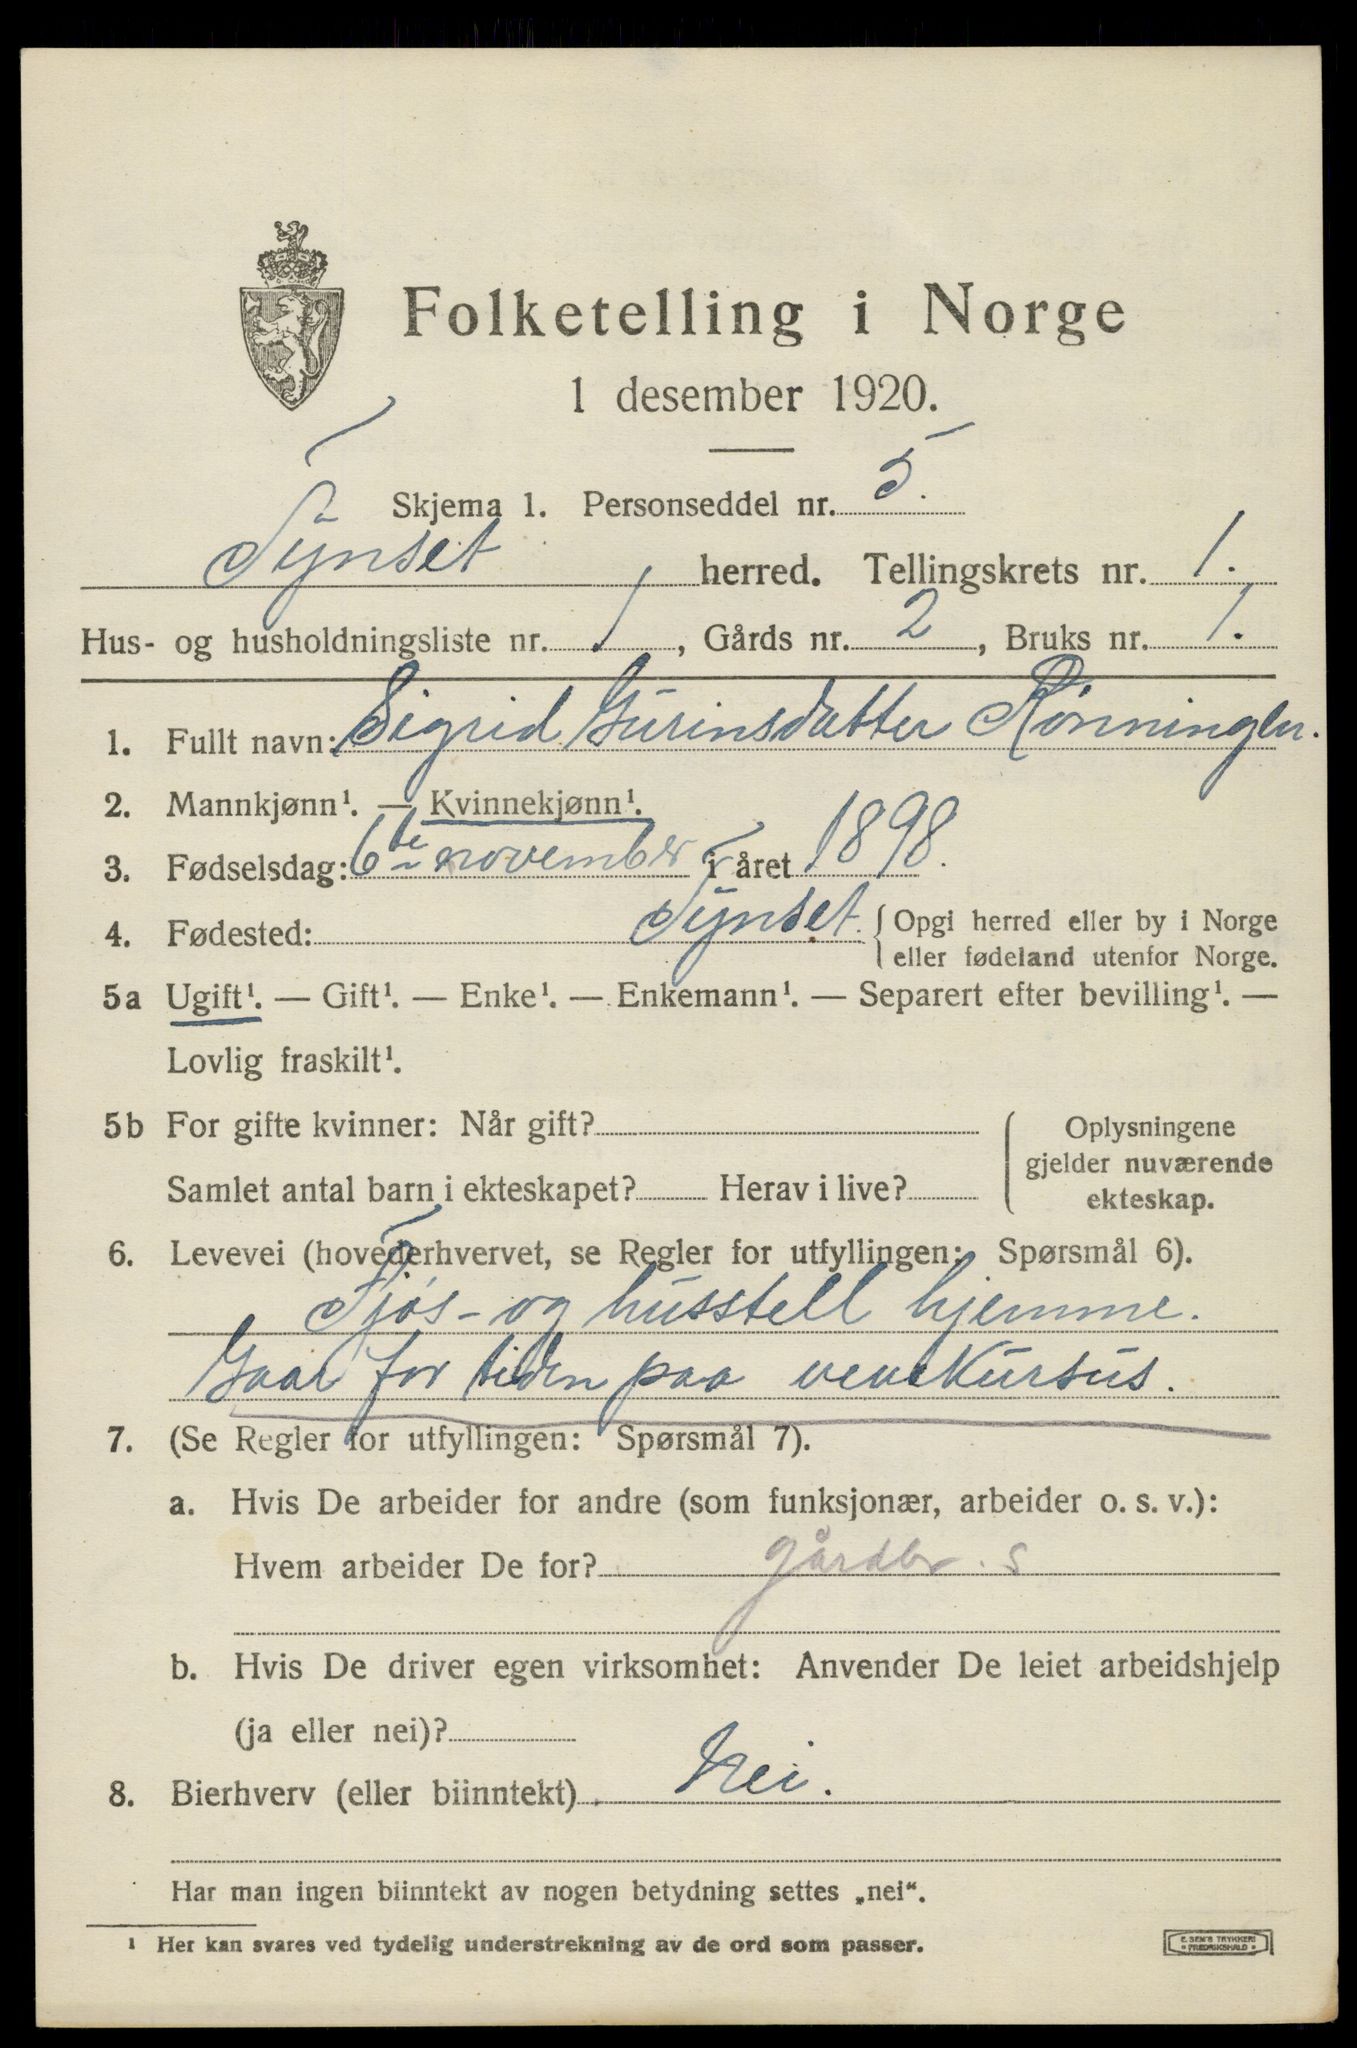 Folketelling i Norge
1 desember 1920.
Skjema 1. Personseddel nr. 5.
Tynset herred. Tellingskrets nr. 1.
Hus- og husholdningsliste nr. 1, Gårds nr. 2, Bruks nr. 1.
1. Fullt navn: Sigrid Gurinsdatter Rønningen.
2. Mannkjønn¹. — Kvinnekjønn¹.
3. Fødselsdag: 6te november i året 1898.
4. Fødested: Tynset. { Opgi herred eller by i Norge
eller fødeland utenfor Norge.
5a Ugift¹. — Gift¹. — Enke¹. — Enkemann¹. — Separert efter bevilling¹. —
Lovlig fraskilt¹.
5b For gifte kvinner: Når gift?
Samlet antal barn i ekteskapet? Herav i live?
Oplysningene
gjelder nuværende
ekteskap.
6. Levevei (hovederhvervet, se Regler for utfyllingen: Spørsmål 6).
Fjøs- og husstell hjemme.
Gaar for tiden paa vevekursus.
7. (Se Regler for utfyllingen: Spørsmål 7).
a. Hvis De arbeider for andre (som funksjonær, arbeider o. s. v.):
Hvem arbeider De for? gårdbr. s
b. Hvis De driver egen virksomhet: Anvender De leiet arbeidshjelp
(ja eller nei)?
8. Bierhverv (eller biinntekt) Nei.
Har man ingen biinntekt av nogen betydning settes „nei“.
¹ Her kan svares ved tydelig understrekning av de ord som passer.
E. SEM'S TRYKKERI
• FREDRIKSHALD •